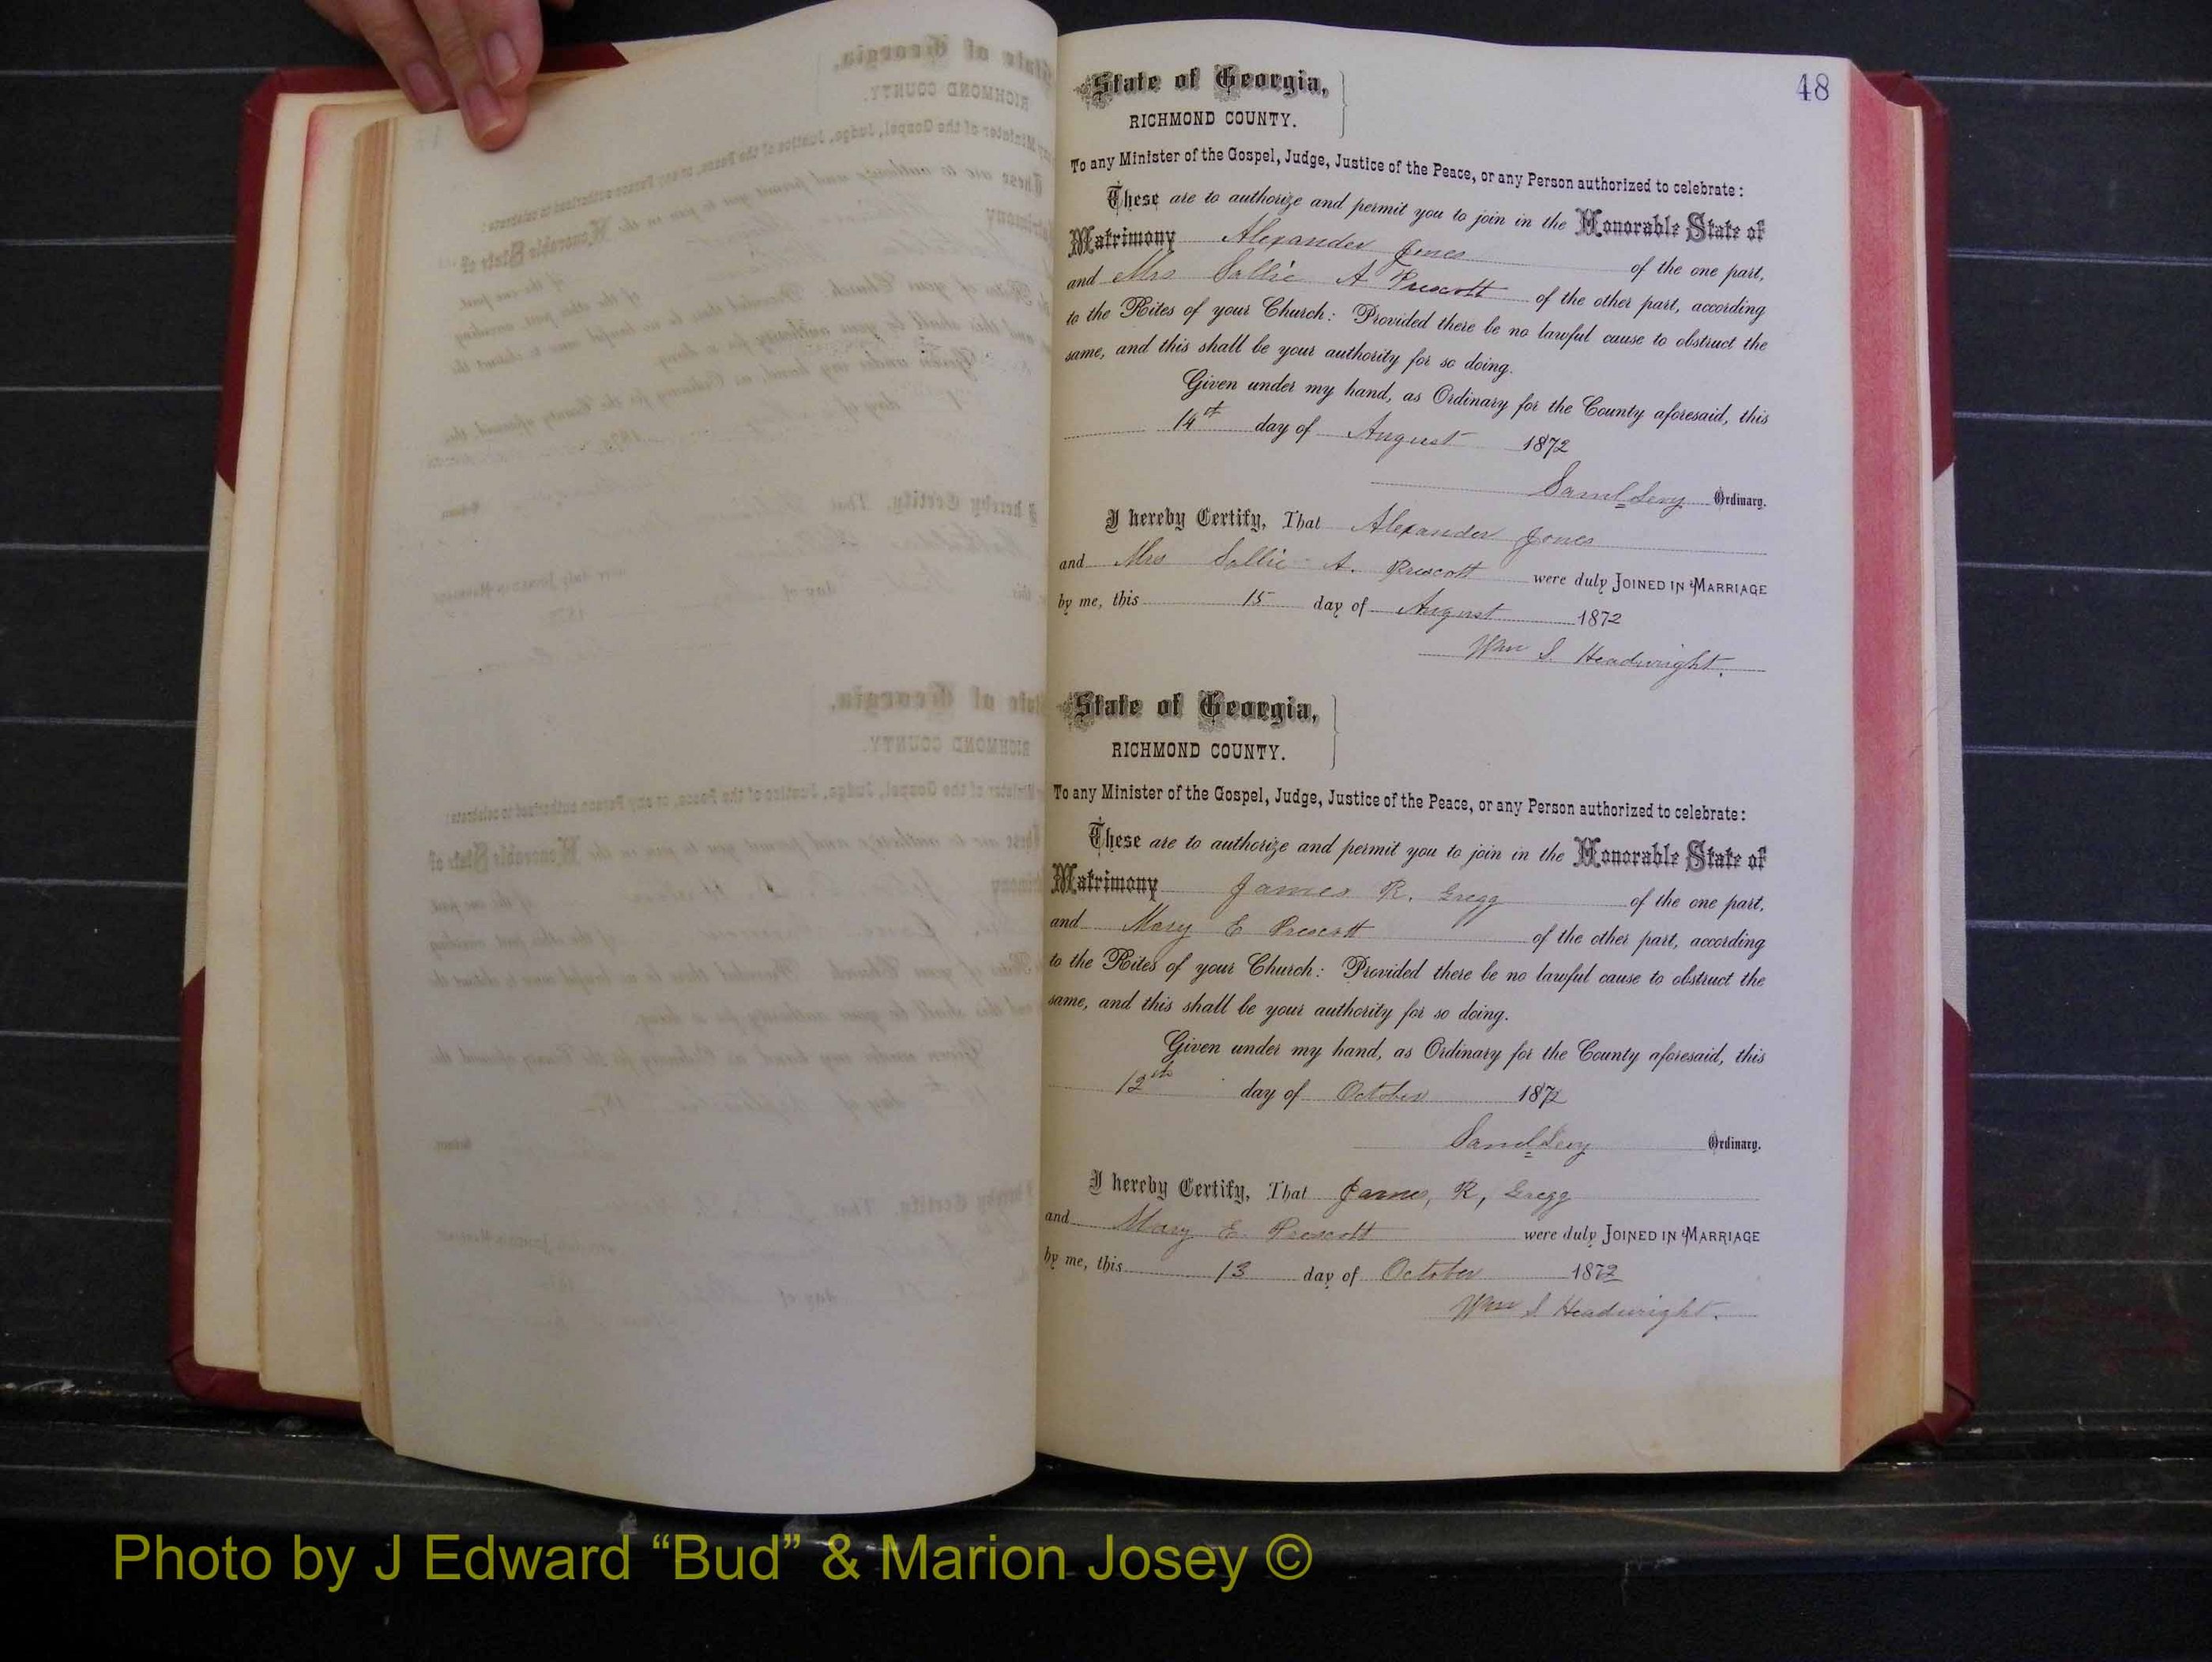 48
State of Georgia,
RICHMOND COUNTY.
To any Minister of the Gospel, Judge, Justice of the Peace, or any Person authorized to celebrate:
These are to authorize and permit you to join in the Honorable State of
Matrimony Alexander Jones of the one part,
and Mrs Sallie A Prescott of the other part, according
to the Rites of your Church: Provided there be no lawful cause to obstruct the
same, and this shall be your authority for so doing.
Given under my hand, as Ordinary for the County aforesaid, this
14th day of August 1872
Saml Levy Ordinary.
I hereby Certify, That Alexander Jones
and Mrs Sallie A. Prescott were duly JOINED IN MARRIAGE
by me, this 15 day of August 1872
Wm S. Headwright.
State of Georgia,
RICHMOND COUNTY.
To any Minister of the Gospel, Judge, Justice of the Peace, or any Person authorized to celebrate:
These are to authorize and permit you to join in the Honorable State of
Matrimony James R. Gregg of the one part,
and Mary E Prescott of the other part, according
to the Rites of your Church: Provided there be no lawful cause to obstruct the
same, and this shall be your authority for so doing.
Given under my hand, as Ordinary for the County aforesaid, this
12th day of October 1872
Saml Levy Ordinary.
I hereby Certify, That James, R, Gregg
and Mary E. Prescott were duly JOINED IN MARRIAGE
by me, this 13 day of October 1872
Wm S. Headwright.
Photo by J Edward “Bud” & Marion Josey ©